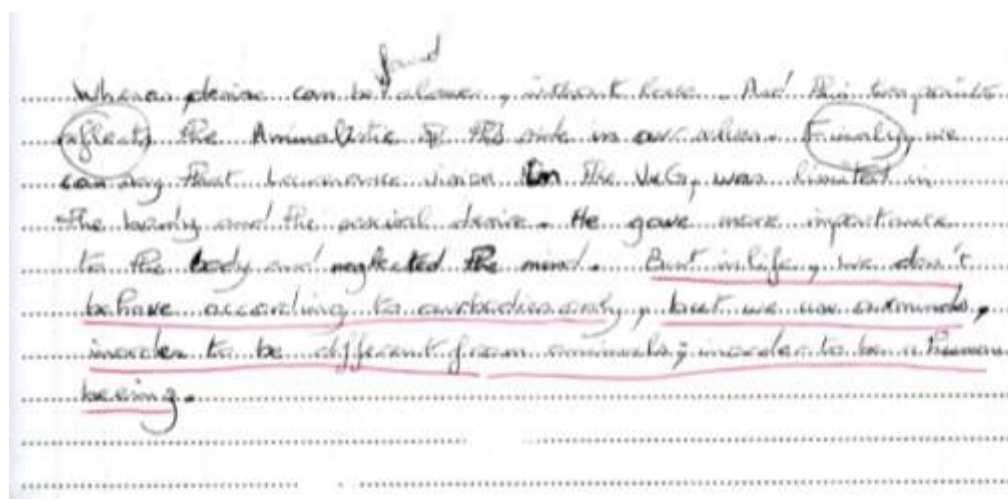 found
Whereas desire can be alone, without love. And this
reflects the Animalistic side in our selves. Finaly, we
can say that Lawrence vision in the V&G, was limited in
the body and the sexual desire. He gave more importance
to the body and neglected the mind. But in life, we don't
behave according to our bodies only, but we use our minds,
inorder to be different from animals; inorder to be a human
beeing.